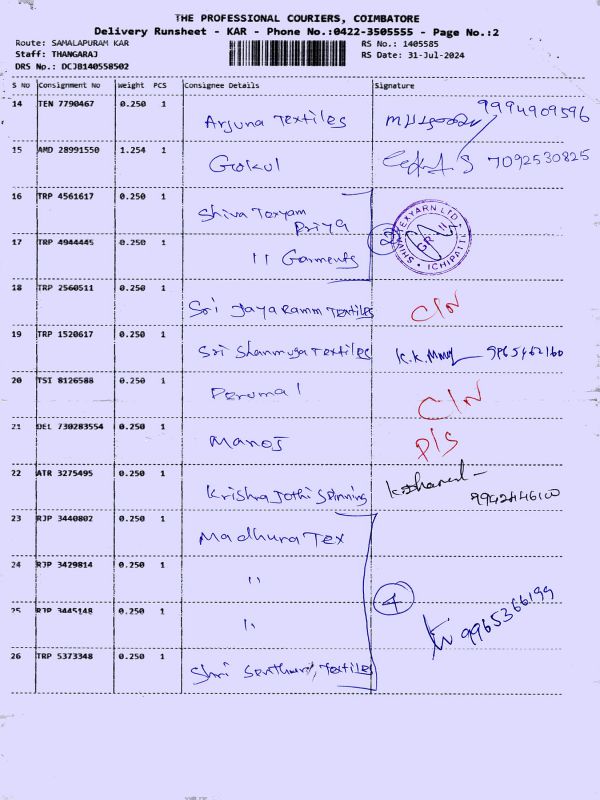 THE PROFESSIONAL COURIERS, COIMBATORE
Delivery Runsheet - KAR - Phone No.:0422-3505555 - Page No.:2
Route: SAMALAPURAM KAR
RS No.: 1405585
Staff: THANGARAJ
RS Date: 31-Jul-2024
DRS No.: DCJB140558502
S No Consignment No Weight PCS Consignee Details Signature
14 TEN 7790467 0.250 1 Arjuna Textiles 9994909596
15 AMD 28991550 1.254 1 Gokul 7092530825
16 TRP 4561617 0.250 1 Shiva Texyarn
Priya
17 TRP 4944445 0.250 1 11 Garments
2
18 TRP 2560511 0.250 1 Sri Jaya Ramm Textiles C/N
19 TRP 1520617 0.250 1 Sri Shanmuga Textiles
20 TSI 8126588 0.250 1 Perumal C/N
21 DEL 730283554 0.250 1 Manoj P/S
22 ATR 3275495 0.250 1 Krishna Jothi Spinning
23 RJP 3440802 0.250 1 Madhura Tex
24 RJP 3429814 0.250 1 "
4
25 RJP 3445148 0.250 1 "
9965366199
26 TRP 5373348 0.250 1 Textiles